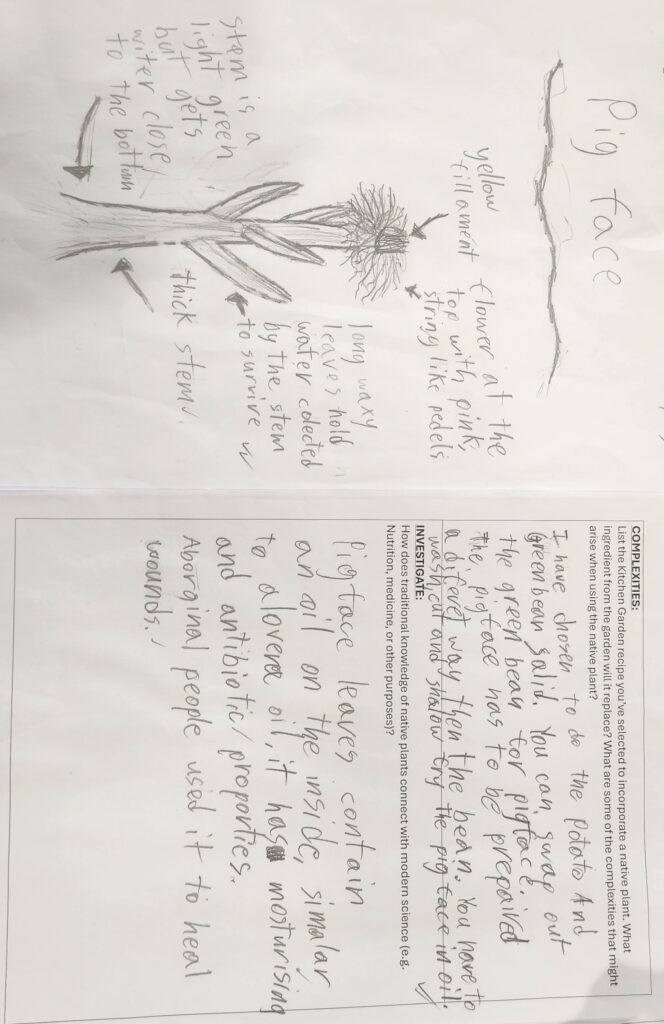 Pig face
yellow
fillament
flower at the
top with pink,
string like pedels
stem is a
light green
but gets
witer close
to the bottom
long waxy
leaves hold
water colected
by the stem
to survive
thick stem.
COMPLEXITIES:
List the Kitchen Garden recipe you've selected to incorporate a native plant. What
ingredient from the garden will it replace? What are some of the complexities that might
arise when using the native plant?
I have chosen to do the potato And
Greenbean salid. You can swap out
the green bean for pigface.
the pigface has to be prepaired
a diferet way then the bean. You have to
wash, cut and shalow fry the pig face in oil.
INVESTIGATE:
How does traditional knowledge of native plants connect with modern science (e.g.
Nutrition, medicine, or other purposes)?
Pigface leaves contain
an oil on the inside, simalar
to alovera oil, it has mosturising
and antibiotic properties.
Aborginal people used it to heal
wounds.